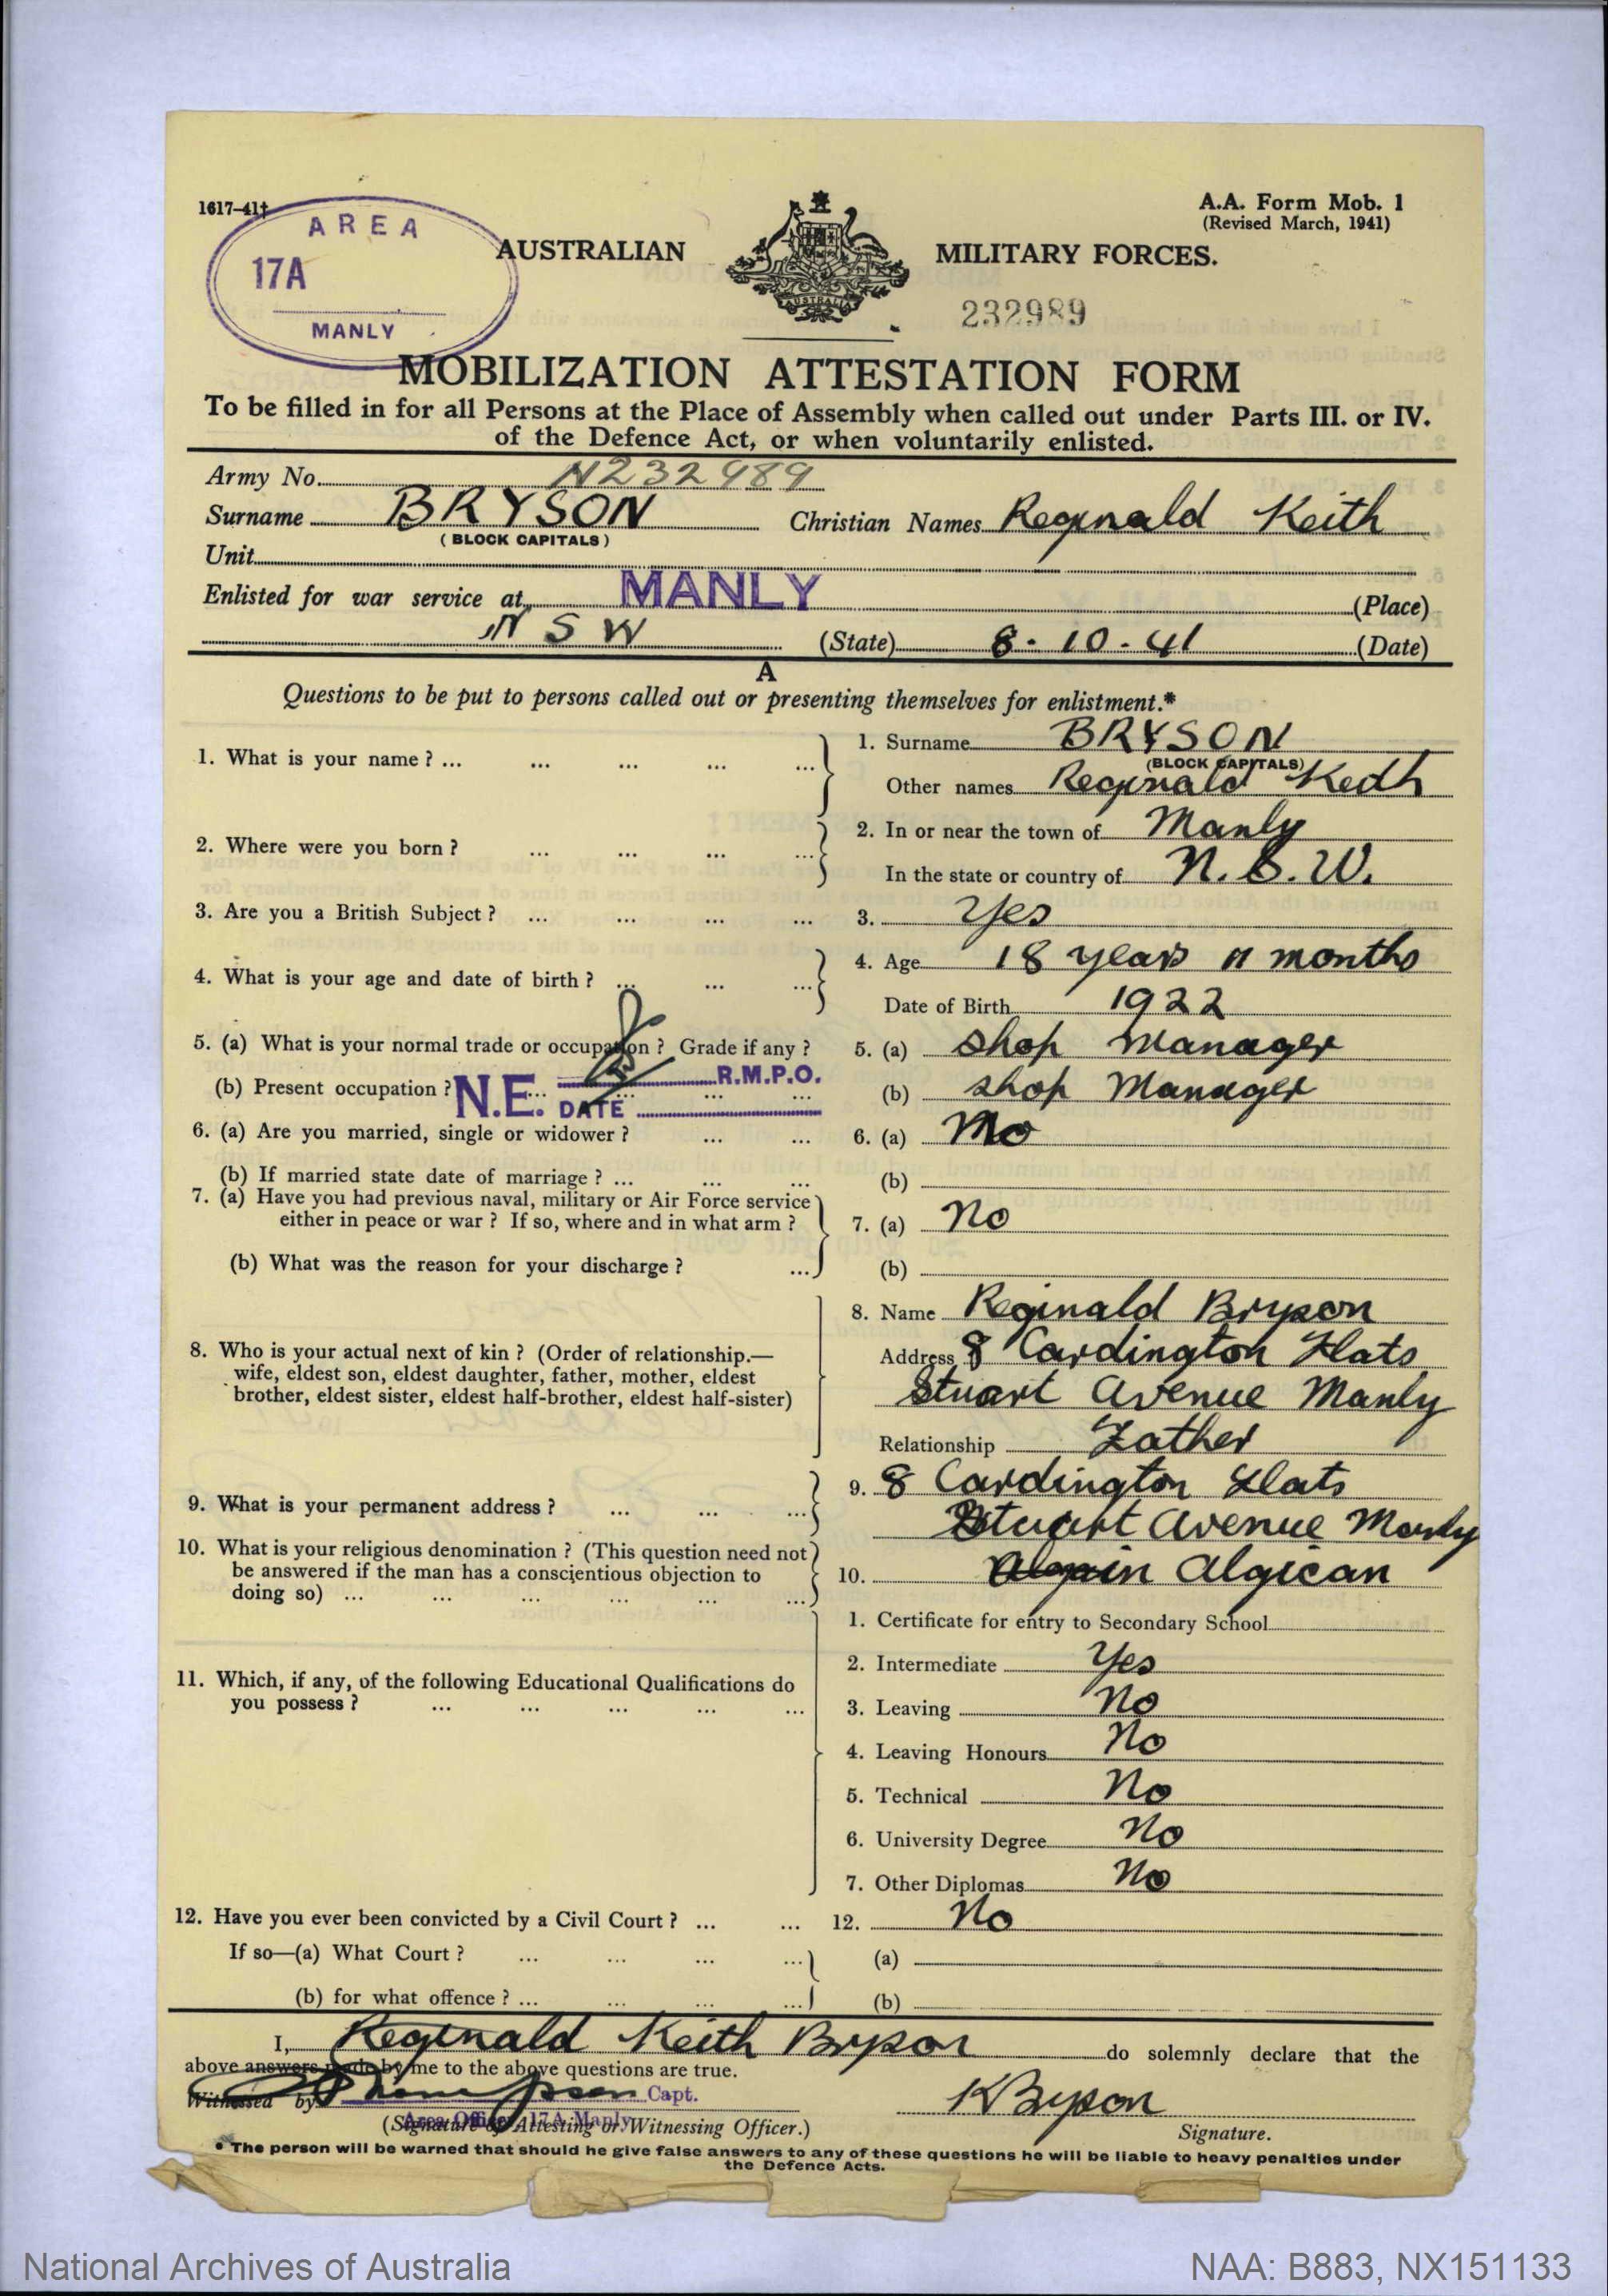 1617-41†
A.A. Form Mob. 1
(Revised March, 1941)
AREA
17A
MANLY
AUSTRALIAN MILITARY FORCES.
AUSTRALIA
232989
MOBILIZATION ATTESTATION FORM
To be filled in for all Persons at the Place of Assembly when called out under Parts III. or IV.
of the Defence Act, or when voluntarily enlisted.
Army No. N232989
Surname BRYSON Christian Names Reginald Keith
(BLOCK CAPITALS)
Unit
Enlisted for war service at MANLY (Place)
NSW (State) 8-10-41 (Date)
A
Questions to be put to persons called out or presenting themselves for enlistment.*
1. What is your name? ... ... ... ... ... 1. Surname BRYSON
(BLOCK CAPITALS)
Other names Reginald Keith
2. Where were you born? ... ... ... ... 2. In or near the town of Manly
In the state or country of N.S.W.
3. Are you a British Subject? ... ... ... ... 3. Yes
4. What is your age and date of birth? ... ... ... 4. Age 18 years 11 months
Date of Birth 1922
5. (a) What is your normal trade or occupation? Grade if any? 5. (a) Shop Manager
(b) Present occupation? ... ... ... ... (b) shop Manager
N.E. R.M.P.O.
DATE
6. (a) Are you married, single or widower? ... ... 6. (a) No
(b) If married state date of marriage? ... ... ... (b)
7. (a) Have you had previous naval, military or Air Force service
either in peace or war? If so, where and in what arm? 7. (a) No
(b) What was the reason for your discharge? ... (b)
8. Name Reginald Bryson
8. Who is your actual next of kin? (Order of relationship.— Address 8 Cardington Flats
wife, eldest son, eldest daughter, father, mother, eldest
brother, eldest sister, eldest half-brother, eldest half-sister) Stuart Avenue Manly
Relationship Father
9. What is your permanent address? ... ... ... 9. 8 Cardington Flats
Stuart Avenue Manly
10. What is your religious denomination? (This question need not
be answered if the man has a conscientious objection to 10. Algican
doing so) ... ... ... ... ... ...
1. Certificate for entry to Secondary School
2. Intermediate Yes
11. Which, if any, of the following Educational Qualifications do
you possess? ... ... ... ... ... 3. Leaving No
4. Leaving Honours No
5. Technical No
6. University Degree No
7. Other Diplomas No
12. Have you ever been convicted by a Civil Court? ... ... 12. No
If so—(a) What Court? ... ... ... ... (a)
(b) for what offence? ... ... ... ... (b)
I, Reginald Keith Bryson do solemnly declare that the
above answers made by me to the above questions are true.
Witnessed by Thompson Capt. K Bryson
Area Officer 17A Manly
(Signature of Attesting or Witnessing Officer.) Signature.
* The person will be warned that should he give false answers to any of these questions he will be liable to heavy penalties under
the Defence Acts.
National Archives of Australia NAA: B883, NX151133